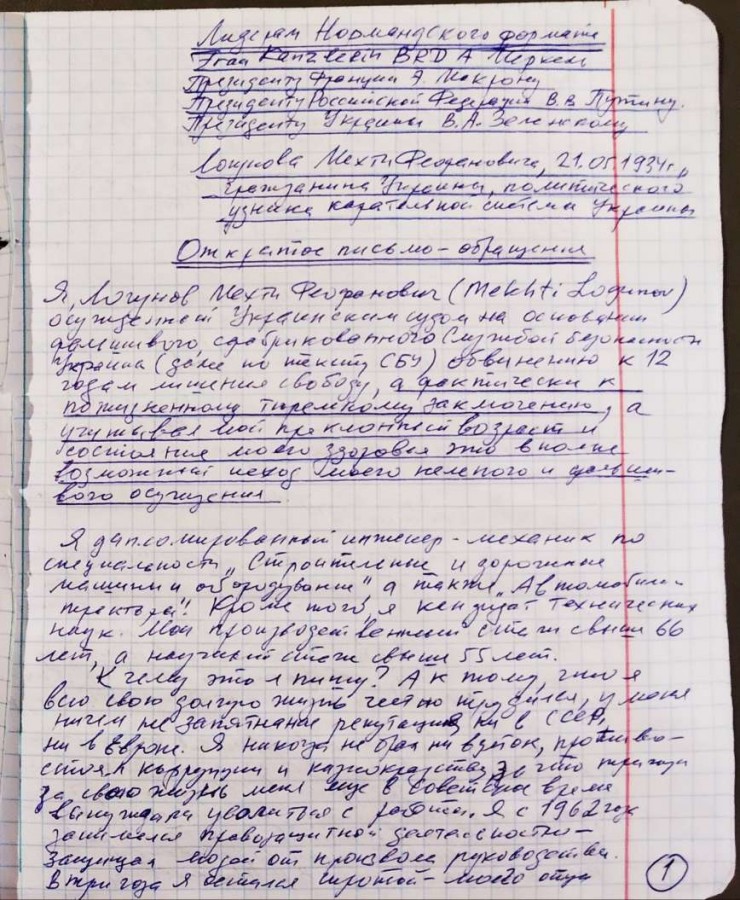 Лидерам Нормандского формата
Канцлеру BRD А Меркель
Президенту Франции Э. Макрону
Президенту Российской Федерации В.В Путину.
Президенту Украины В.А. Зеленскому
Логунова Мехти Феофановича, 21.05.1934г.,
гражданина Украины, политического
узника карательной системы Украины
Открытое письмо-обращения
Я, Логунов Мехти Феофанович (Mekhti Logunov)
осужденный Украинским судом на основании
фальшивого, сфабрикованного Службой безопасности
Украина (далее по тексту СБУ) обвинению к 12
годам лишения свободы, а фактически к
пожизненному тюремному заключению, а
учитывая мой преклонный возраст и
состояние моего здоровья это вполне
возможный исход моего нелепого и фальши-
вого осуждения.
Я дипломированный инженер-механик по
специальности "Строительные и дорожные
машины и оборудование" а также "Автомобили и
трактора". Кроме того, я кандидат технических
наук. Мой производственный стаж свыше 66
лет, а научный стаж свыше 55 лет.
К чему это я пишу? А к тому, что я
всю свою долгую жизнь честно трудился, у меня
ничем не запятнанная репутация ни в СССР,
ни в Европе. Я никогда не брал ни взяток, противо-
стоял коррупции и казнокрадству, за что трижды
за свою жизнь меня еще в советское время
вынуждали уволиться с работы. Я с 1962 года
занимался правозащитной деятельностью-
защищал людей от произвола руководства.
В три года я остался сиротой-моего отца
1